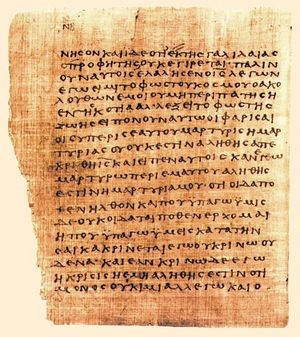 ΝΒ
ΝΗϹΟΝΚΑΙΙΔΕΟΤΙΕΚΤΗϹΓΑΛΙΛΑΙΑϹ
ΟΠΡΟΦΗΤΗϹΟΥΚΕΓΙΡΕΤΑΙ ΠΑΛΙΝ
ΟΥΝΑΥΤΟΙϹΕΛΑΛΗϹΕΝΟΙϹΛΕΓΩΝ
ΕΓΩΕΙΜΙΤΟΦΩϹΤΟΥΚΟϹΜΟΥΟΑΚΟ
ΛΟΥΘΩΝΕΜΟΙΟΥΜΗΠΕΡΙΠΑΤΗϹΗ
ΕΝΤΗϹΚΟΤΙΑΑΛΛΕΞΕΙΤΟΦΩϹΤΗϹ
ΖΩΗϹΕΙΠΟΝΟΥΝΑΥΤΩΟΙΦΑΡΙϹΑΙ
ΟΙϹΥΠΕΡΙϹΕΑΥΤΟΥΜΑΡΤΥΡΙϹΗΜΑΡ
ΤΥΡΙΑϹΟΥΟΥΚΕϹΤΙΝΑΛΗΘΗϹΑΠΕ
ΚΡΙΘΗΙϹΚΑΙΕΙΠΕΝΑΥΤΟΙϹΚΑΝΕΓΩ
ΜΑΡΤΥΡΩΠΕΡΙΕΜΑΥΤΟΥΑΛΗΘΗϹ
ΕϹΤΙΝΗΜΑΡΤΥΡΙΑΜΟΥΟΤΙΟΙΔΑΠΟ
ΘΕΝΗΛΘΟΝΚΑΙΠΟΥΥΠΑΓΩΥΜΙϹ
ΔΕΟΥΚΟΙΔΑΤΑΙΠΟΘΕΝΕΡΧΟΜΑΙ
ΗΠΟΥΥΠΑΓΩΥΜΕΙϹΚΑΤΑΤΗΝ
ϹΑΡΚΑΚΡΙΝΕΤΑΙΕΓΩΟΥΚΡΙΝΩΟΥ
ΔΕΝΑΚΑΙΕΑΝΚΡΙΝΩΔΕΕΓΩ
ΗΚΡΙϹΙϹΗΕΜΗΑΛΗΘΗϹΕϹΤΙΝΟΤΙ
ΜΟΝΟϹΟΥΚΙΜΙΑΛΛΕΓΩΚΑΙΟ